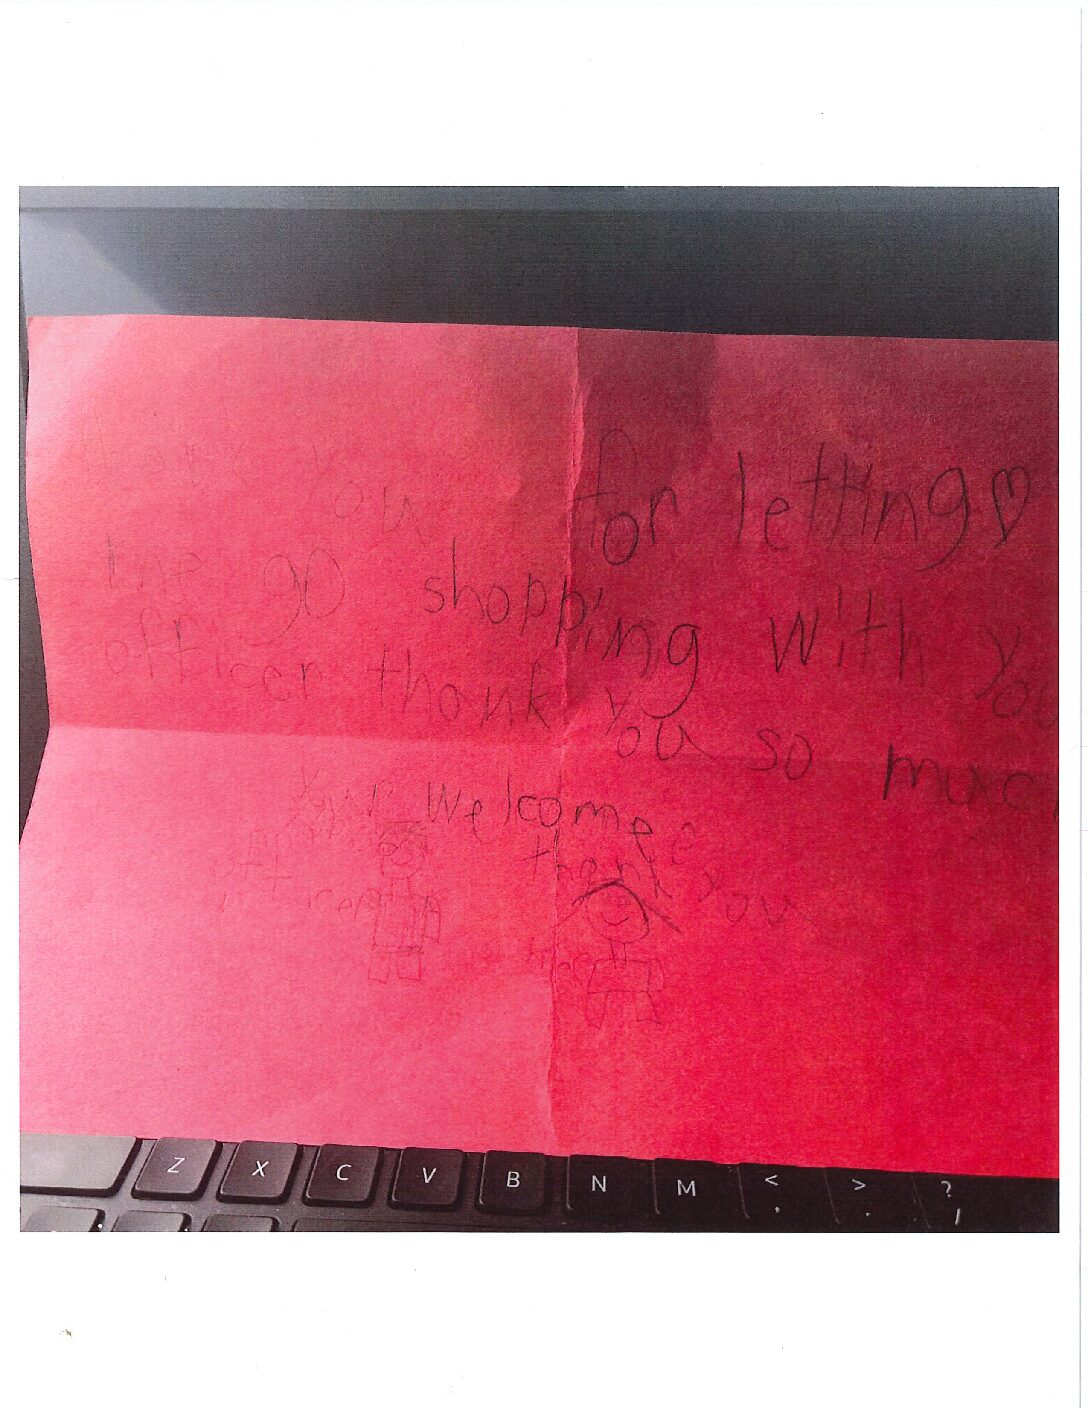 thank you for letting
me go shopping with you
officer thank you so much
your welcome
officer
thank you
me
Z X C V B N M < , > . ? /